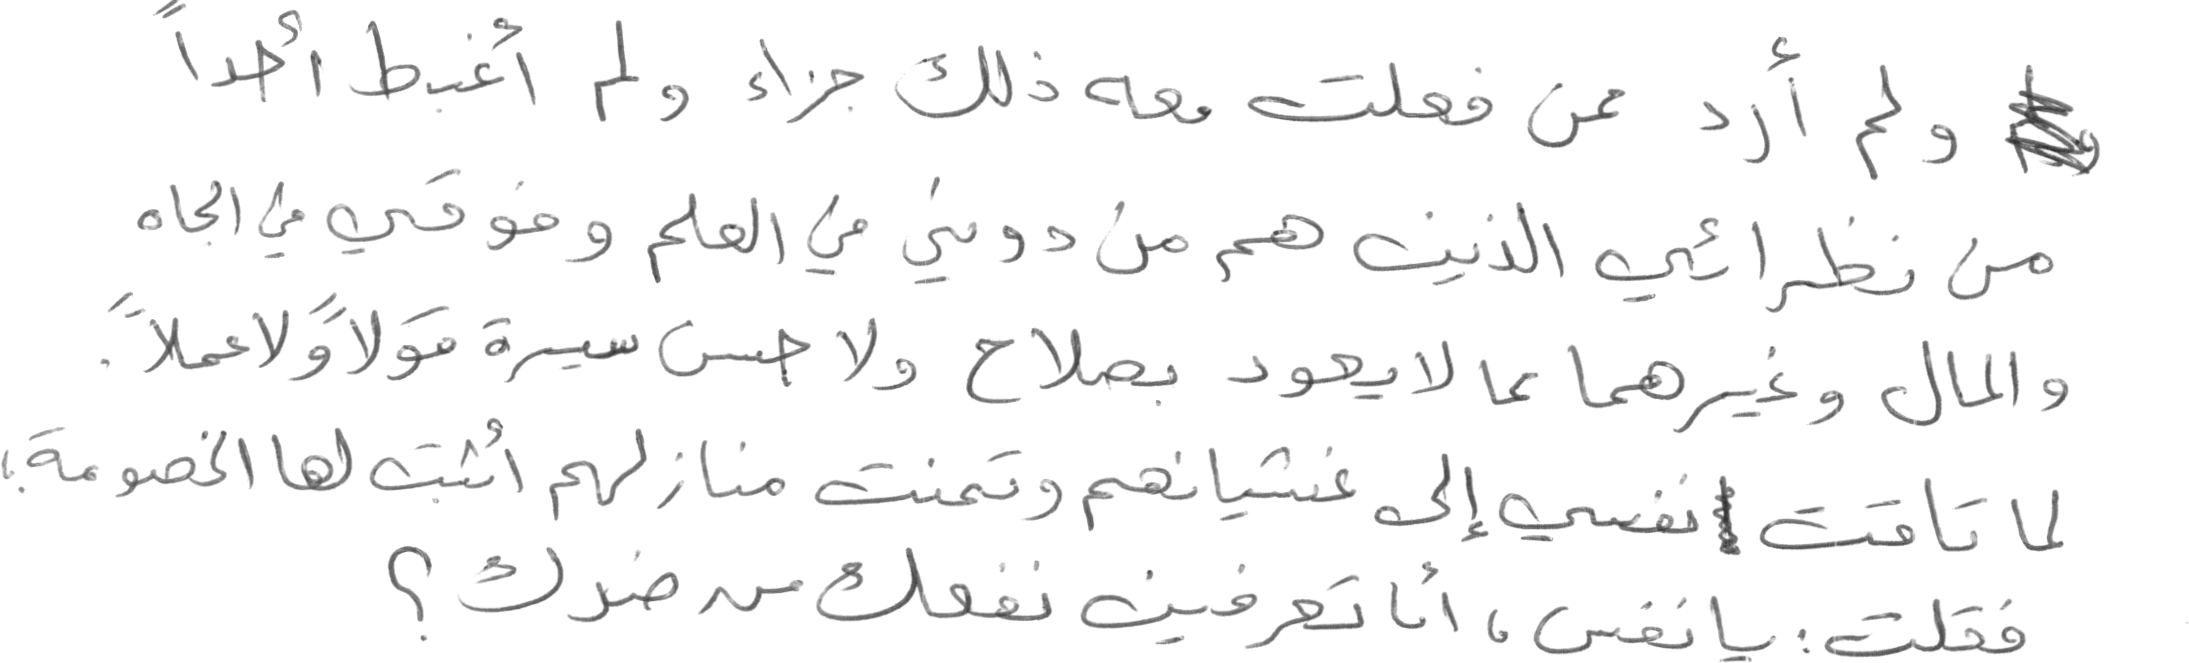 ولم أرد ممن فعلت معه ذلك جزاء ولم أغبط أحداً
من نظرائي الذين هم من دوني في العلم وفوقي في الجاه
والمال وغيرهما مما لا يعود بصلاح ولا حسن سيرة قولاً ولا عملاً.
لما تاقت نفسي إلى غشيانهم وتمنت منازلهم أثبت لها الخصومة،
فقلت: يا نفس، أما تعرفين نفعك من ضرك؟